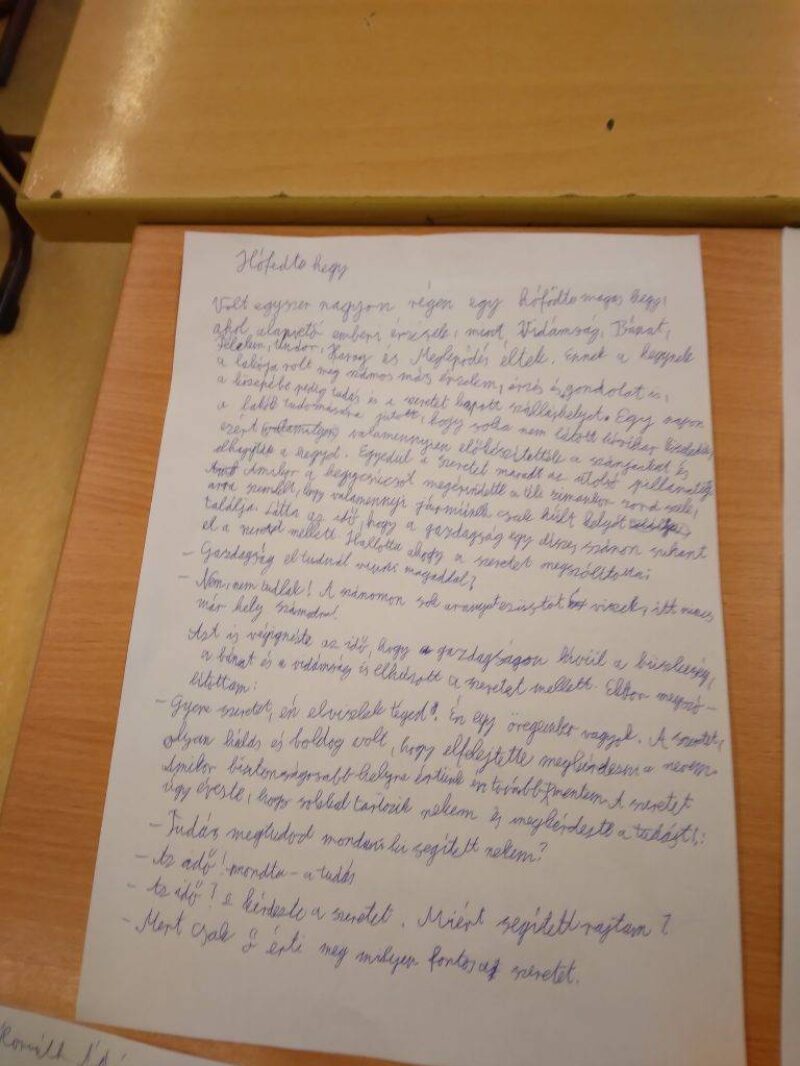 Hófödta hegy
Volt egyszer nagyon régen egy hófödta magas hegy,
ahol alapvető emberi érzések, mint Vidámság, Bánat,
Félelem, Undor, Harag és Meglepődés éltek. Ennek a hegynek
a lakója volt még számos más érzelem, érzés és gondolat is,
a közepébe pedig tudás és a szeretet kapott szálláshelyet. Egy napon
a lakók tudomására jutott, hogy soha nem látott hóvihar
ezért valamennyien előkészítették a szánjaikat és
elhagyták a hegyet. Egyedül a szeretet maradt az utolsó pillanatig
Amikor a hegycsúcsot megérintette a tél zimankor zord szele,
arra szemlélt, hogy valamennyi járműnek csak hűlt helyét
találja. Látta az idő, hogy a gazdagság egy díszes szánon suhant
el a szeretet mellett. Hallotta ahogy a szeretet megszólította:
- Gazdagság el tudnál vinni magaddal?
- Nem, nem tudlak! A szánomon sok aranyat ezüstöt viszek, itt nincs
már hely számodra!
Azt is végignézte az idő, hogy a gazdagságon kívül a büszkeség,
a bánat és a vidámság is elhúzott a szeretet mellett. Ekkor megszó-
lítottam:
- Gyere szeretet, én elviszlek téged! Én egy öregember vagyok. A szeretet,
olyan hálás és boldog volt, hogy elfelejtette megkérdezni a nevem
Amikor biztonságosabb helyre értünk én továbbmentem. A szeretet
úgy érezte, hogy sokkal tartozik nekem és megkérdezte a tudást:
- Tudás megtudod mondani ki segített nekem?
- Az idő! mondta - a tudás
- Az idő? kérdezte a szeretet. Miért segített rajtam?
- Mert csak ő érti meg milyen fontos az szeretet.
Horváth